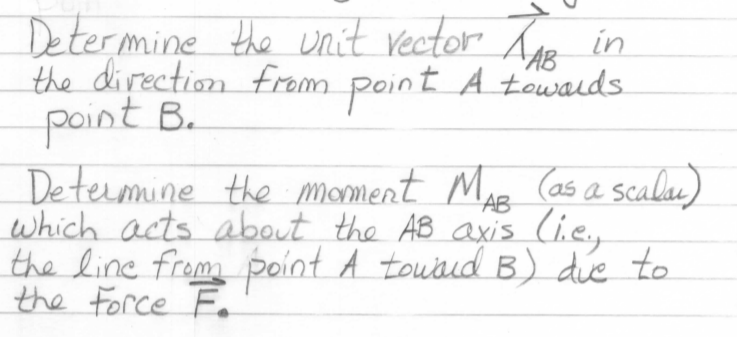 Determine the unit vector λ⃗AB in
the direction from point A towards
point B.
Determine the moment MAB (as a scalar)
which acts about the AB axis (i.e.,
the line from point A toward B) due to
the force F⃗.